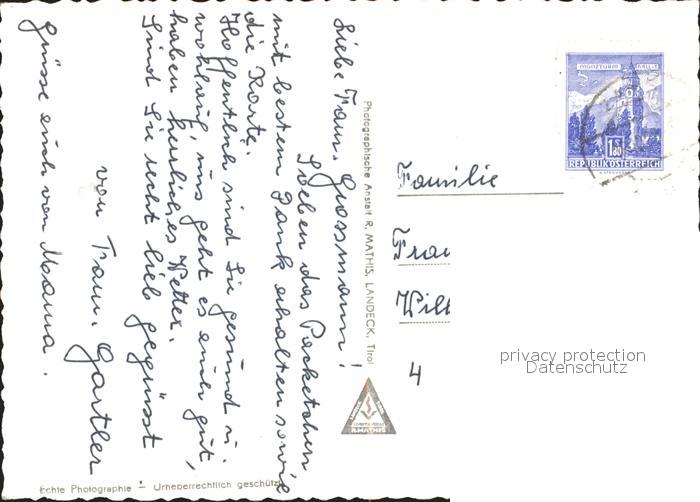 Liebe Fam. Grossmann!
Soeben das Packetchen
mit bestem Dank erhalten sowie
die Karte.
Hoffentlich sind Sie gesund u.
wohlauf, uns geht es immer gut,
haben herrliches Wetter.
Sind Sie recht lieb gegrüsst
von Fam. Gartler
Grüsse auch von Mama.
Photographische Anstalt R. MATHIS, LANDECK, Tirol
R.MATHIS
Echte Photographie – Urheberrechtlich geschützt
MÜNZTURM HALL i.T.
1.80
REPUBLIK ÖSTERREICH
Familie
Fra
Wil
4
privacy protection
Datenschutz